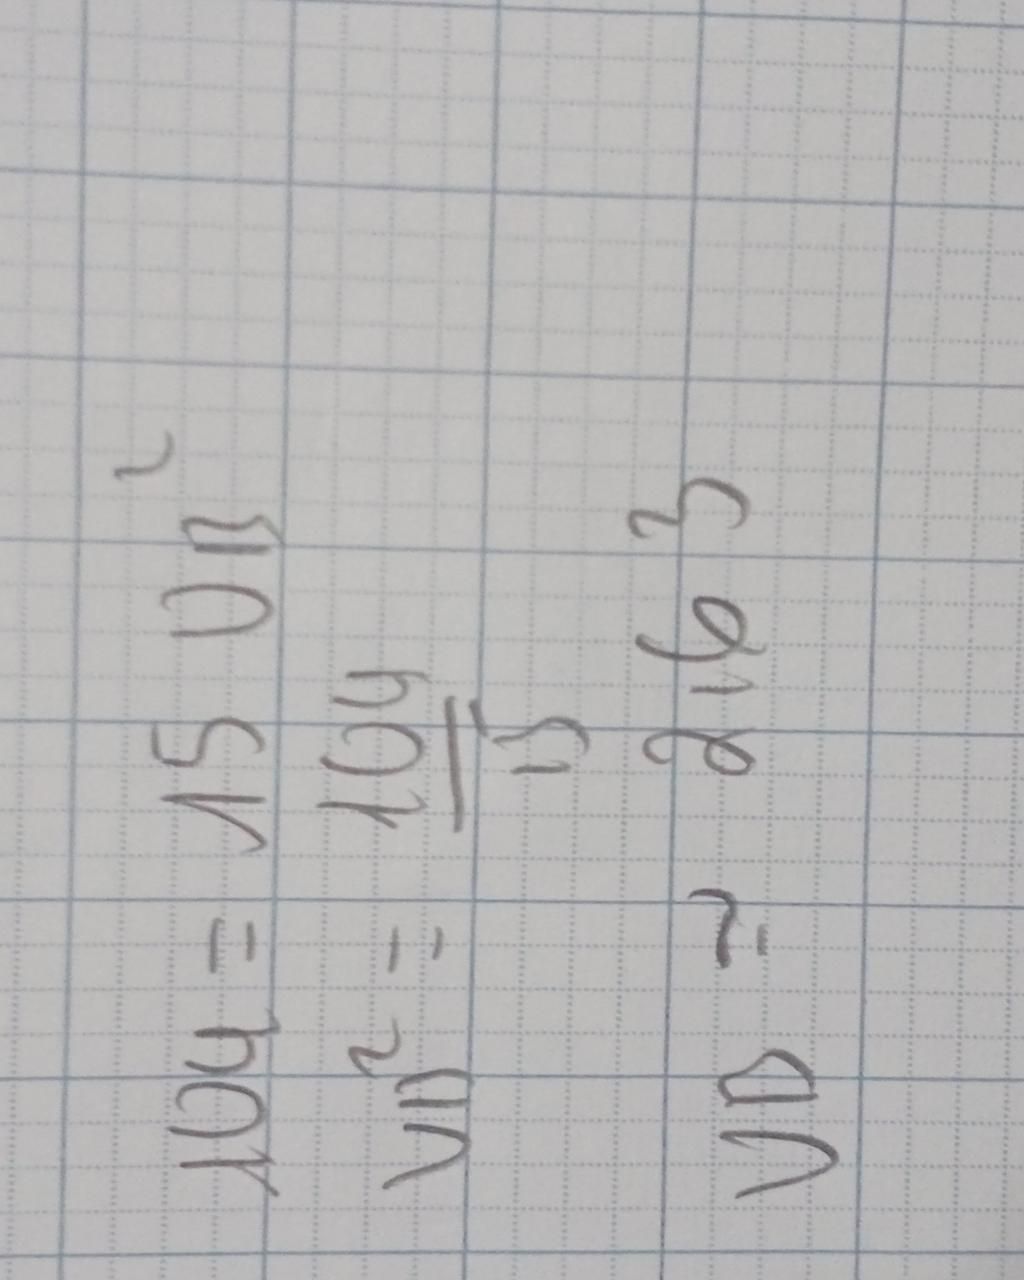 104 = 15 UD²
UD² = 104
15
UD ≃ 2,63